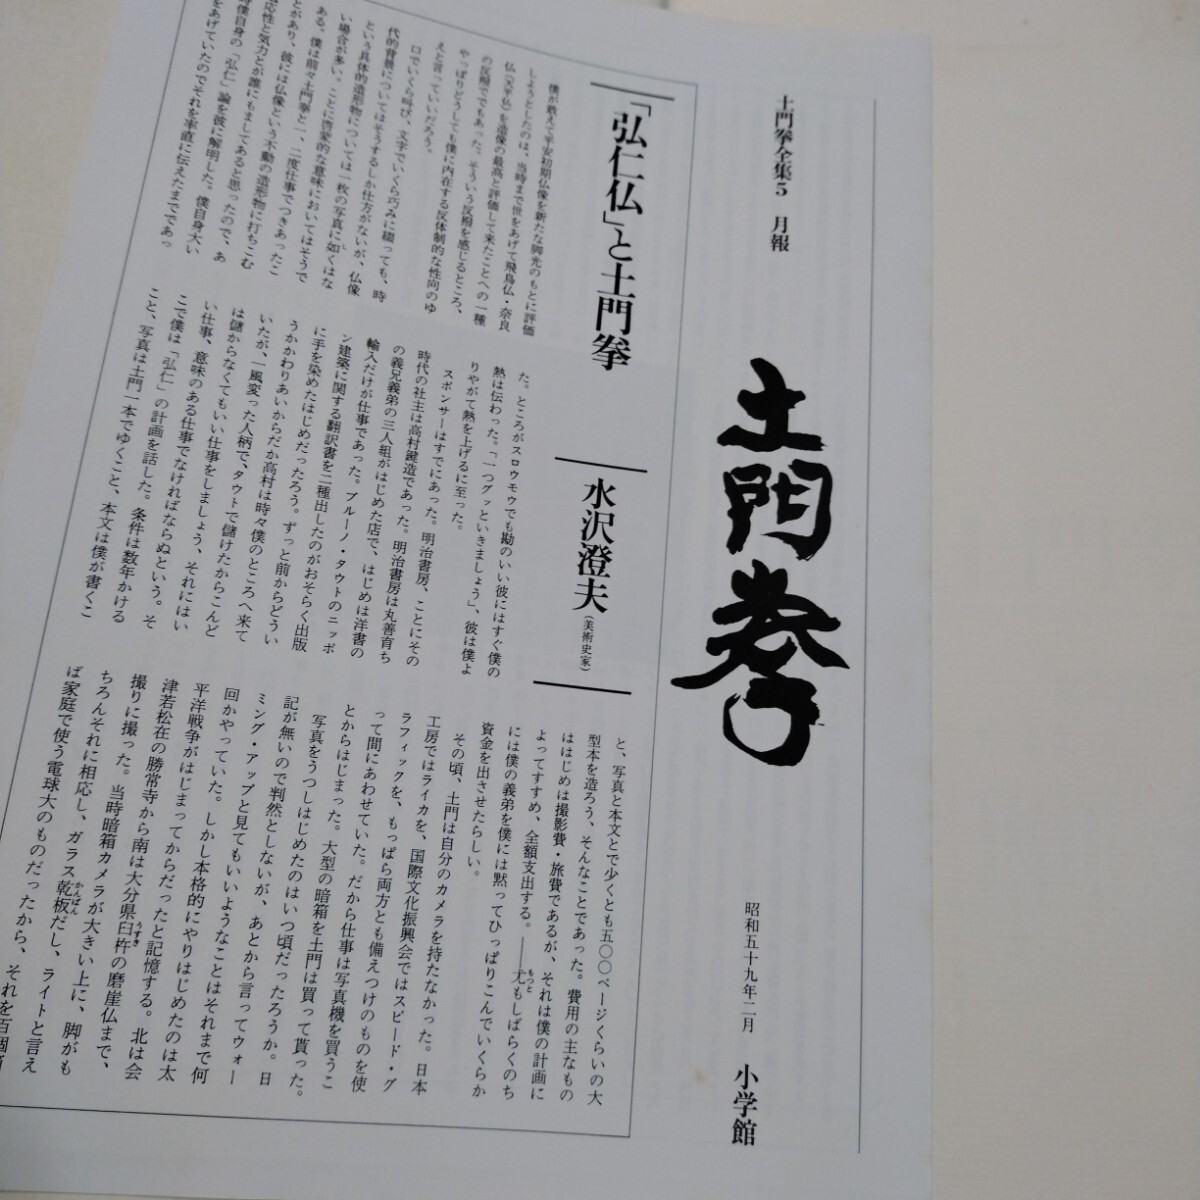 土門拳全集5 月報
土門拳
昭和五十九年二月 小学館
「弘仁仏」と土門拳
水沢澄夫(美術史家)
僕が敢えて平安初期仏像を新たな脚光のもとに評価
しようとしたのは、当時まで世をあげて飛鳥仏・奈良
仏(天平仏)を造像の最高と評価して来たことへの一種
の反撥でもあった。そういう反撥を感じるところ、
やっぱりどうしても僕に内在する反体制的な性向のゆ
えと言っていいだろう。
口でいくら叫び、文字でいくら巧みに綴っても、時
代的背景についてはそうするしか仕方がないが、仏像
という具体的造形物については一枚の写真に如くはな
い場合が多い。ことに啓蒙的な意味においてはそうで
ある。僕は前々土門拳と一、二度仕事でつきあったこ
とがあり、彼には仏像という不動の造形物に打ちこむ
応性と気力とが誰にもましてあると思ったので、あ
時僕自身の「弘仁」論を彼に解明した。僕自身大い
をあげていたのでそれを率直に伝えたまでであっ
た。ところがスロウモウでも勘のいい彼にはすぐ僕の
熱は伝わった。「一つグッといきましょう」、彼は僕よ
りやがて熱を上げるに至った。
スポンサーはすでにあった。明治書房、ことにその
時代の社主は高村鍵造であった。明治書房は丸善育ち
の義兄義弟の三人組がはじめた店で、はじめは洋書の
輸入だけが仕事であった。ブルーノ・タウトのニッポ
ン建築に関する翻訳書を二種出したのがおそらく出版
に手を染めたはじめだったろう。ずっと前からどうい
うかかわりあいからだか高村は時々僕のところへ来て
いたが、一風変った人柄で、タウトで儲けたからこんど
は儲からなくてもいい仕事をしましょう、それにはい
い仕事、意味のある仕事でなければならぬという。そ
こで僕は「弘仁」の計画を話した。条件は数年かける
こと、写真は土門一本でゆくこと、本文は僕が書くこ
と、写真と本文とで少くとも五〇〇ページくらいの大
型本を造ろう、そんなことであった。費用の主なもの
ははじめは撮影費・旅費であるが、それは僕の計画に
よってすすめ、全額支出する。——尤もしばらくのち
には僕の義弟を僕には黙ってひっぱりこんでいくらか
資金を出させたらしい。
その頃、土門は自分のカメラを持たなかった。日本
工房ではライカを、国際文化振興会ではスピード・グ
ラフィックを、もっぱら両方とも備えつけのものを使
って間にあわせていた。だから仕事は写真機を買うこ
とからはじまった。大型の暗箱を土門は買って貰った。
写真をうつしはじめたのはいつ頃だったろうか。日
記が無いので判然としないが、あとから言ってウォー
ミング・アップと見てもいいようなことはそれまで何
回かやっていた。しかし本格的にやりはじめたのは太
平洋戦争がはじまってからだったと記憶する。北は会
津若松在の勝常寺から南は大分県臼杵の磨崖仏まで、
撮りに撮った。当時暗箱カメラが大きい上に、脚がも
ちろんそれに相応し、ガラス乾板だし、ライトと言え
ば家庭で使う電球大のものだったから、それを百個